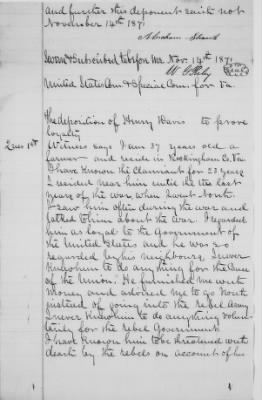 and further this deponent saith not
November 14th 187
Abraham Shank
Sworn & Subscribed to before me Nov. 14th 187
United States Com. & Special Com. for Va.
The deposition of Henry Davis to prove
loyalty
Ques 1st
Witness says I am 37 years old a
farmer and reside in Rockingham Co. Va.
I have known the Claimant for 23 years
I resided near him until the last
year of the war when I went North.
I saw him often during the war and
talked to him about the war. I regarded
him as loyal to the Government of
the United States and he was so
regarded by his neighbours, I never
knew him to do anything for the Cause
of the Union. He furnished me with
money and advised me to go North
instead of going into the rebel army
I never knew him to do anything volun-
tarily for the rebel Government
I have known him to be threatened with
death by the rebels on account of his